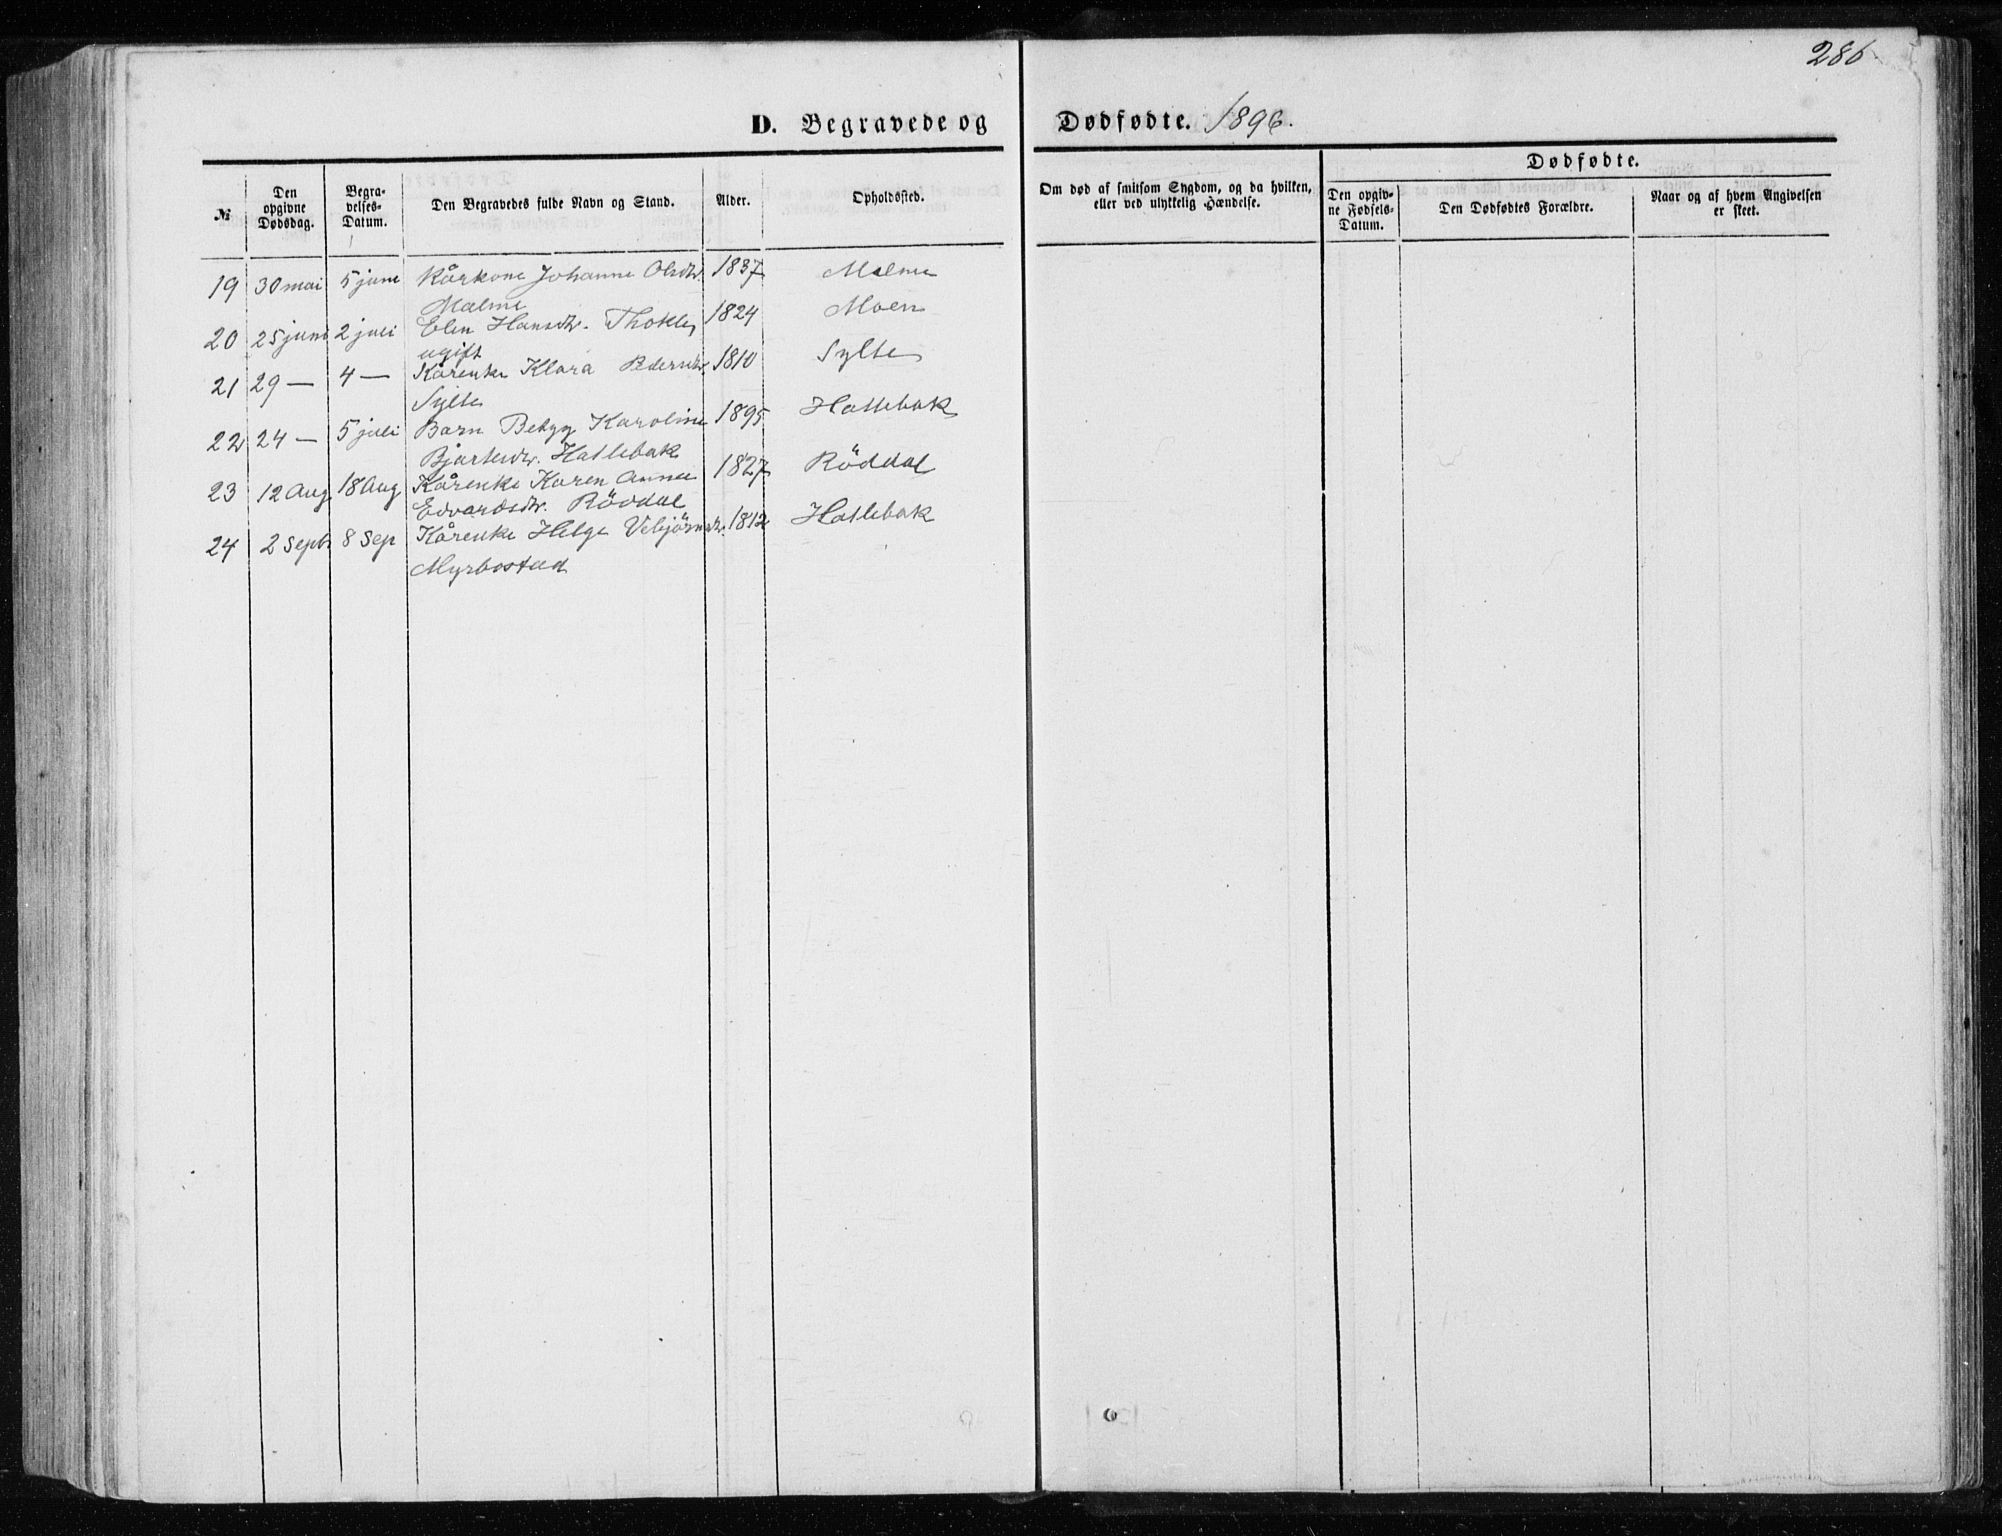 286
D. Begravede og Dødfødte. 1896.
Dødfødte.
№ Den opgivne Dødsdag. Begravelses-Datum. Den Begravedes fulde Navn og Stand. Alder. Opholdssted. Om død af smitsom Sygdom, og da hvilken, eller ved ulykkelig Hændelse. Den opgivne Fødsels-Datum. Den Dødfødtes Forældre. Naar og af hvem Angivelsen er skeet.
19 30 mai 5 juni Kårkone Johanne Olsdtr. 1837 Malme
Malme
20 25 juni 2 juli Elen Hansdtr. 1824 Moen
ugift
21 29 — 4 — Kårenke Klara Pedersdtr. 1810 Sylte
Sylte
22 24 — 5 juli Barn Karoline 1895 Hatlebak
Bjartesdtr. Hatlebak
23 12 Aug 18 Aug Kårenke Karen Anna 1827 Röddal
Edvardsdtr. Röddal
24 2 Septr 8 Sep Kårenke Helge Vebjörnsdtr. 1812 Hatlebak
Myrbostad